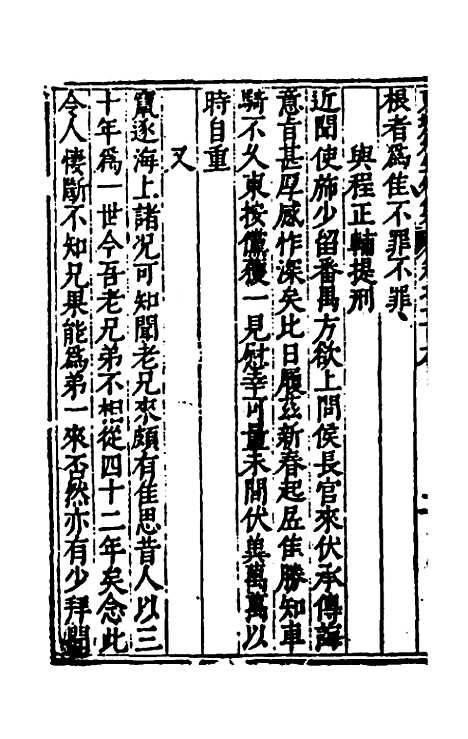 根者爲佳不罪不罪
與程正輔提刑
近聞使斾少留番禺方欲上問侯長官來伏承傳誨
意旨甚厚感怍深矣比日履茲新春起居佳勝知車
騎不久東按儻獲一見慰幸可量未間伏兾萬萬以
時自重
又
竄逐海上諸况可知聞老兄來頗有佳思昔人以三
十年爲一世今吾老兄弟不相從四十二年矣念此
令人悽斷不知兄果能爲弟一來否然亦有少拜聞